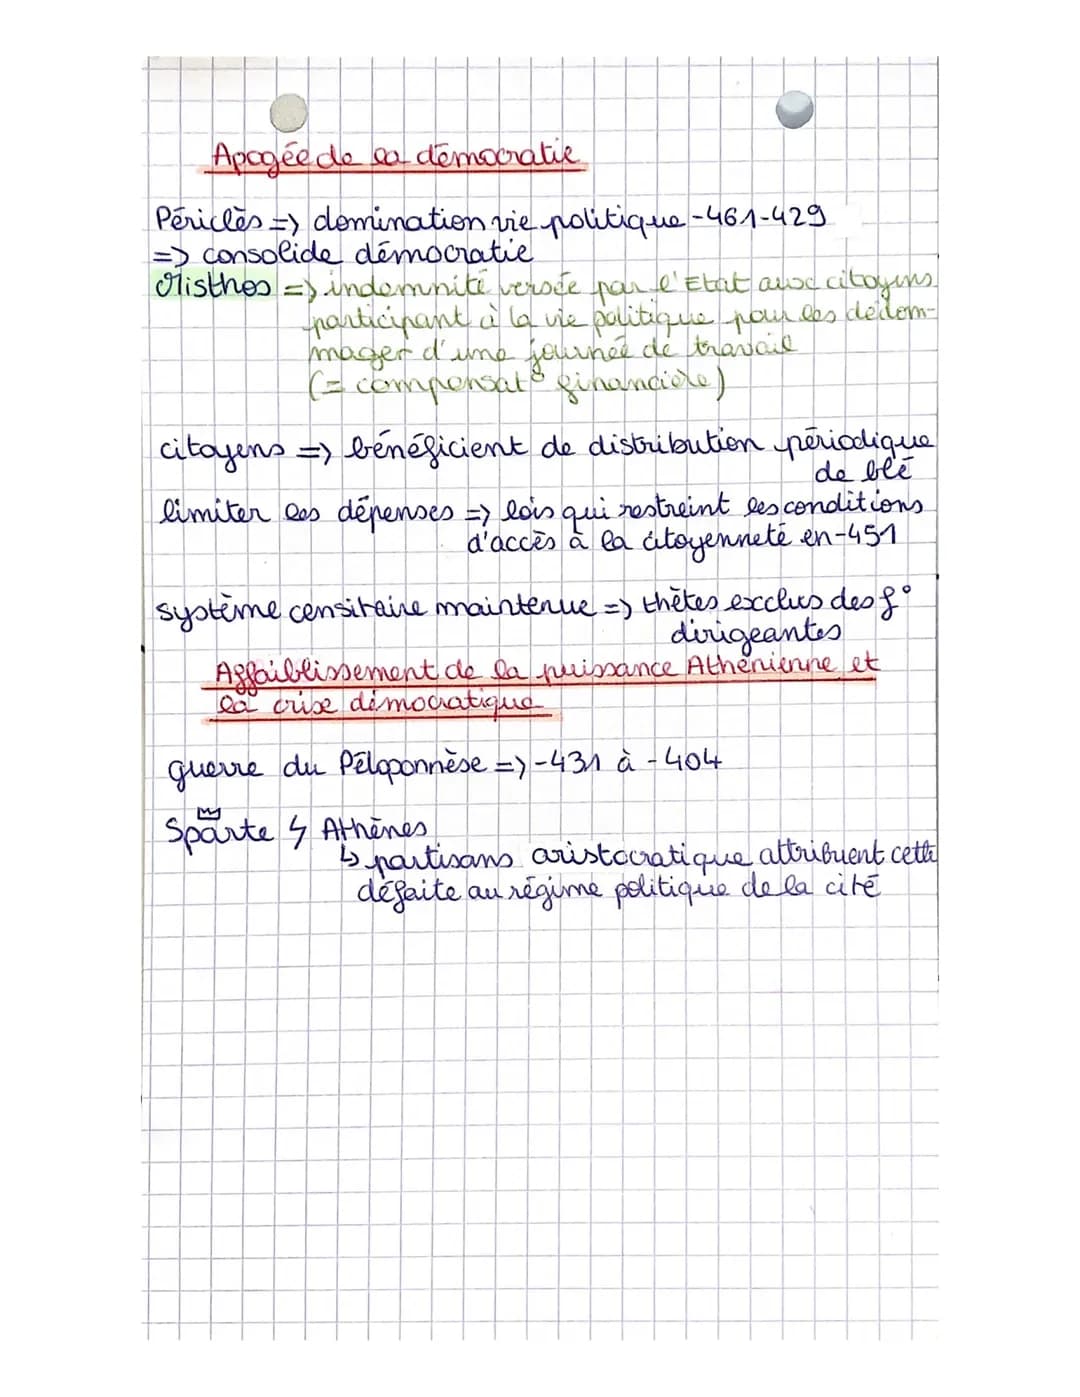 Apogée de la démocratie
Périclès => domination vie politique -461-429
=> consolide démocratie
Misthos => indemnité versée par l'Etat aux citoyens
participant à la vie politique pour les dédom-
mager d'une journée de travail
(= compensat° financière)
citoyens => bénéficient de distribution périodique
de blé
limiter les dépenses => lois qui restreint les conditions
d'accès à la citoyenneté en -451
système censitaire maintenue => thètes exclus des f°
dirigeantes
Affaiblissement de la puissance Athénienne et
la crise démocratique
guerre du Péloponnèse => -431 à -404
Sparte ϟ Athènes
↳ partisans aristocratique attribuent cette
défaite au régime politique de la cité